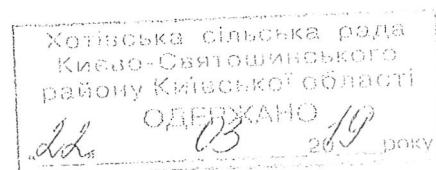 Хотівська сільська рада
Києво-Святошинського
району Київської області
ОДЕРЖАНО
„22„ 03 2019 року